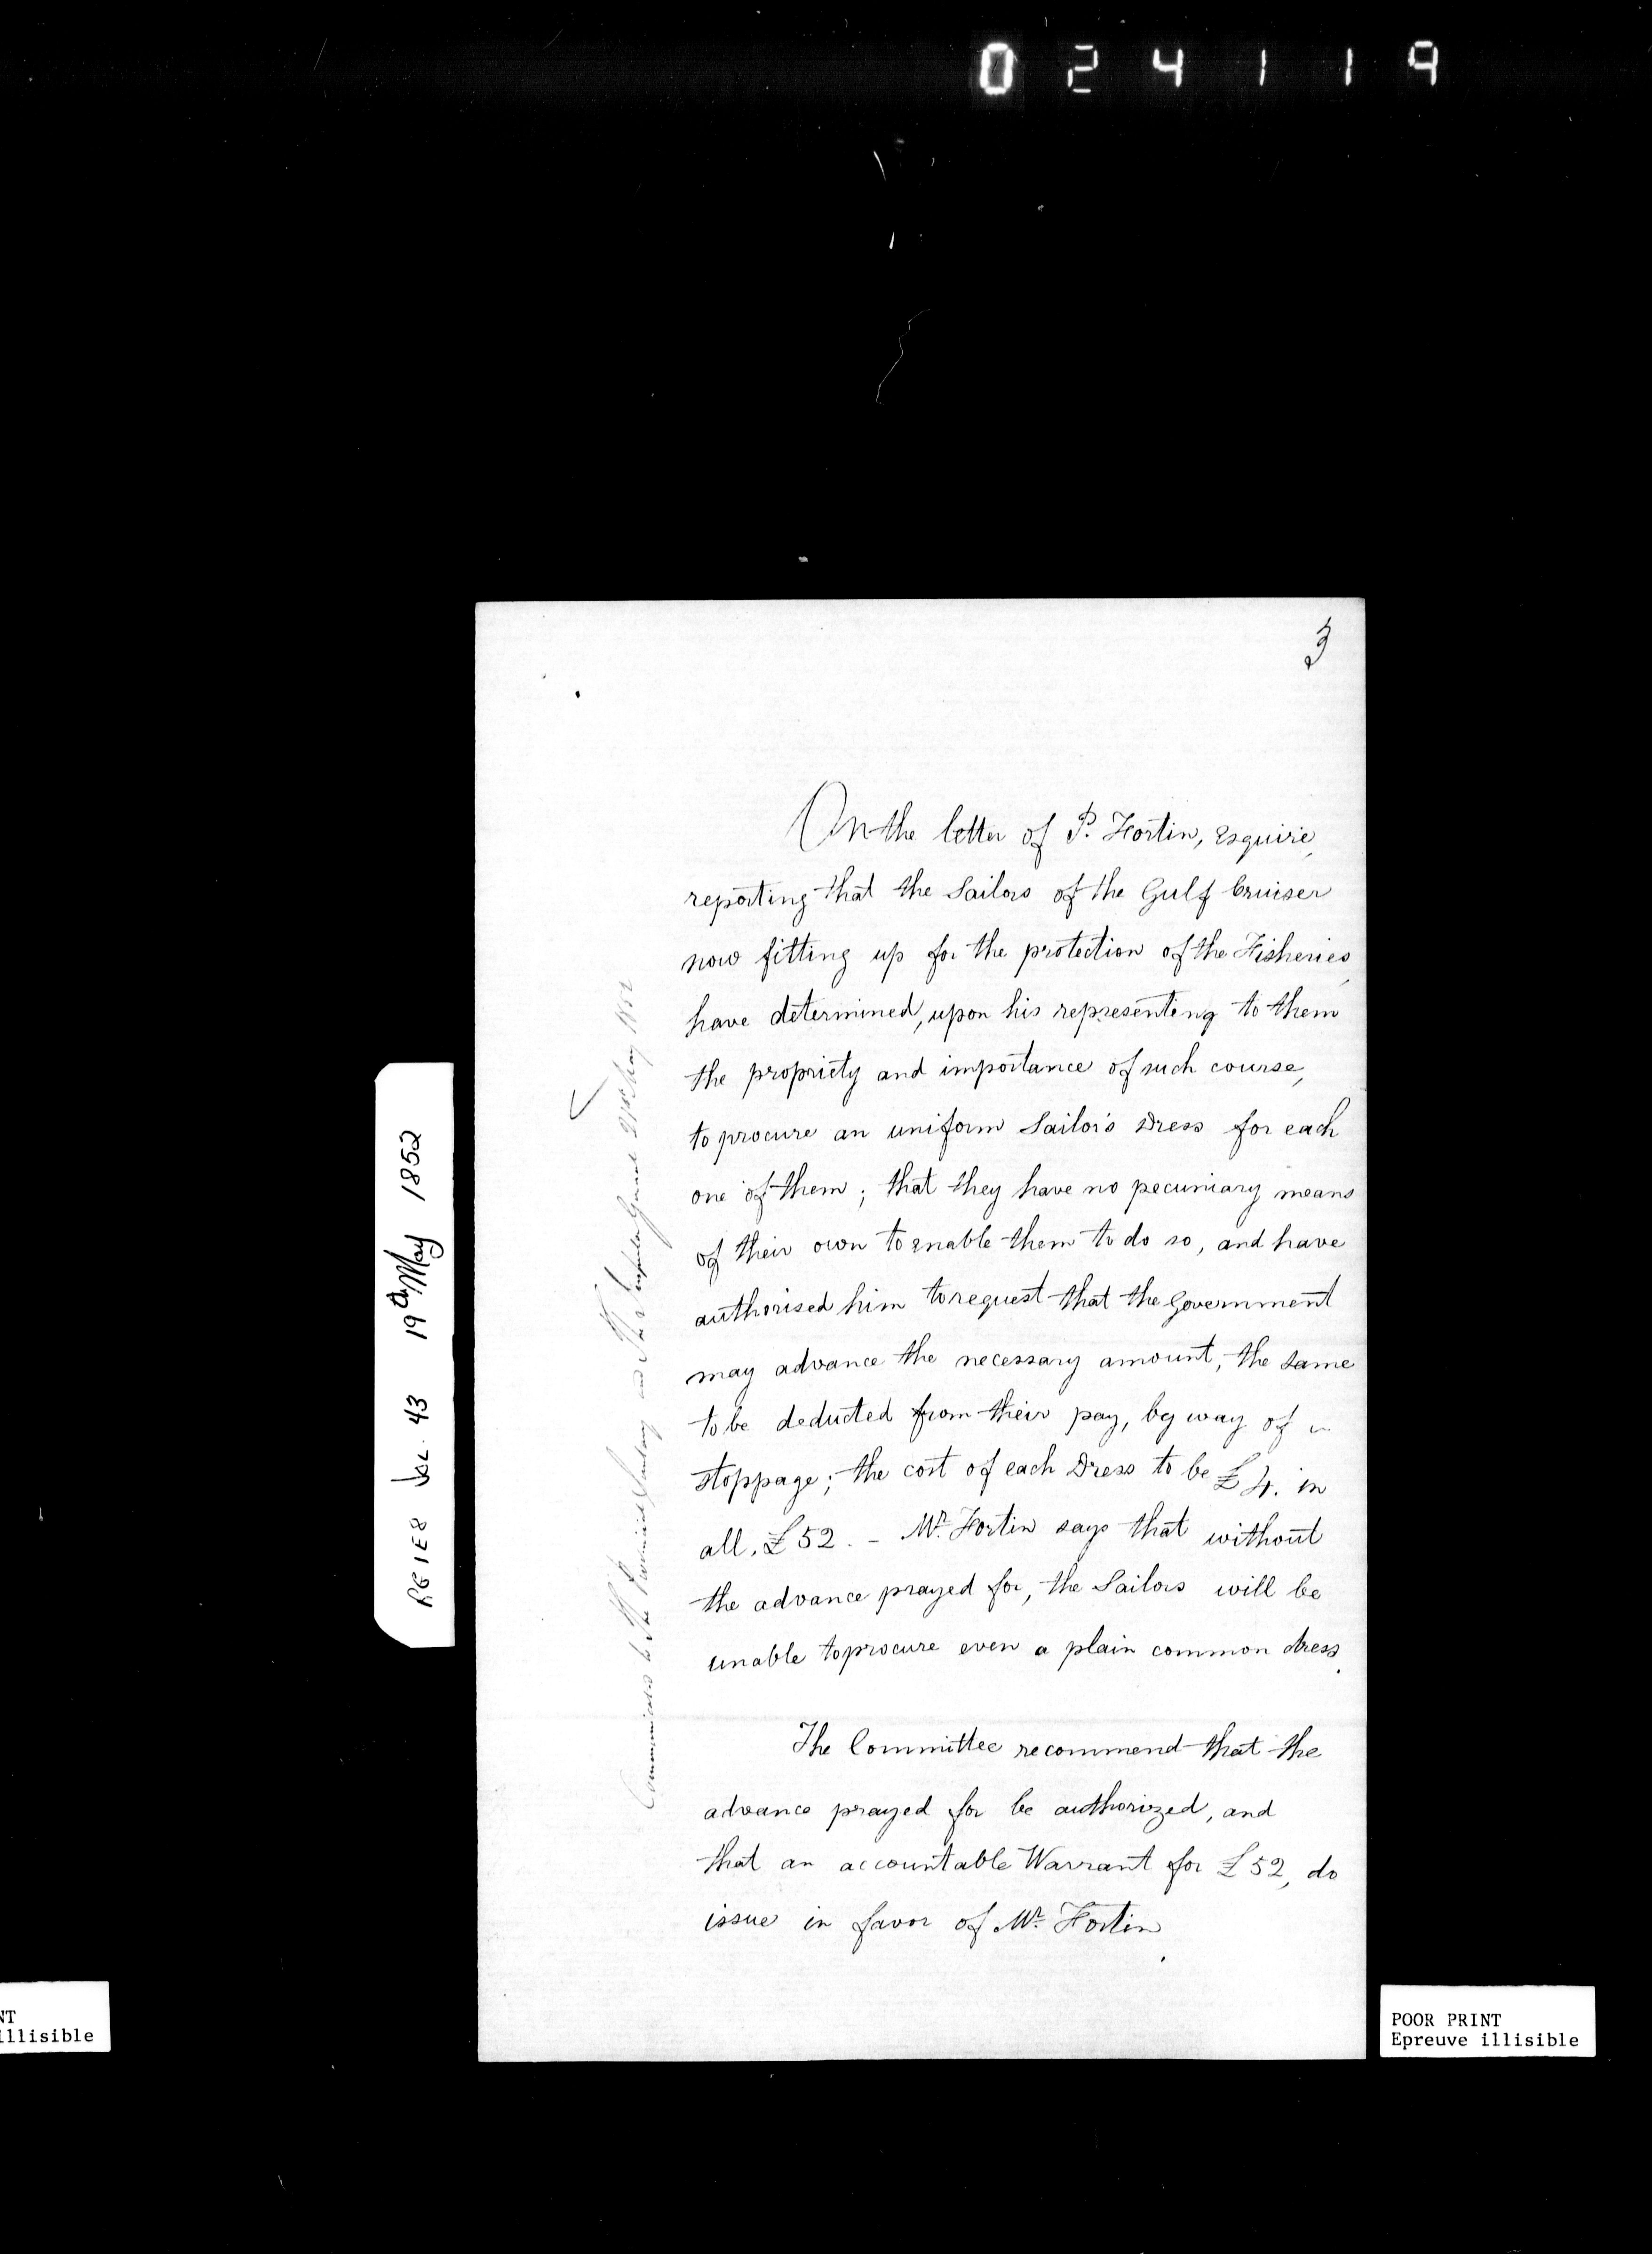 0 2 4 1 1 9
3
On the letter of P. Fortin, Esquire,
reporting that the Sailors of the Gulf Cruiser
now fitting up for the protection of the Fisheries,
have determined, upon his representing to them
the propriety and importance of such course,
to procure an uniform Sailor's Dress for each
one of them; that they have no pecuniary means
of their own to enable them to do so, and have
authorised him to request that the Government
may advance the necessary amount, the same
to be deducted from their pay, by way of
stoppage; the cost of each Dress to be £4. in
all, £52. - Mr. Fortin says that without
the advance prayed for, the Sailors will be
unable to procure even a plain common dress.
The Committee recommend that the
advance prayed for be authorized, and
that an accountable Warrant for £52, do
issue in favor of Mr. Fortin.
Communicated to the Provincial Secretary and the Inspector General 21st May 1852
RG1E8 Vol. 43 19th May 1852
NT
illisible
POOR PRINT
Epreuve illisible